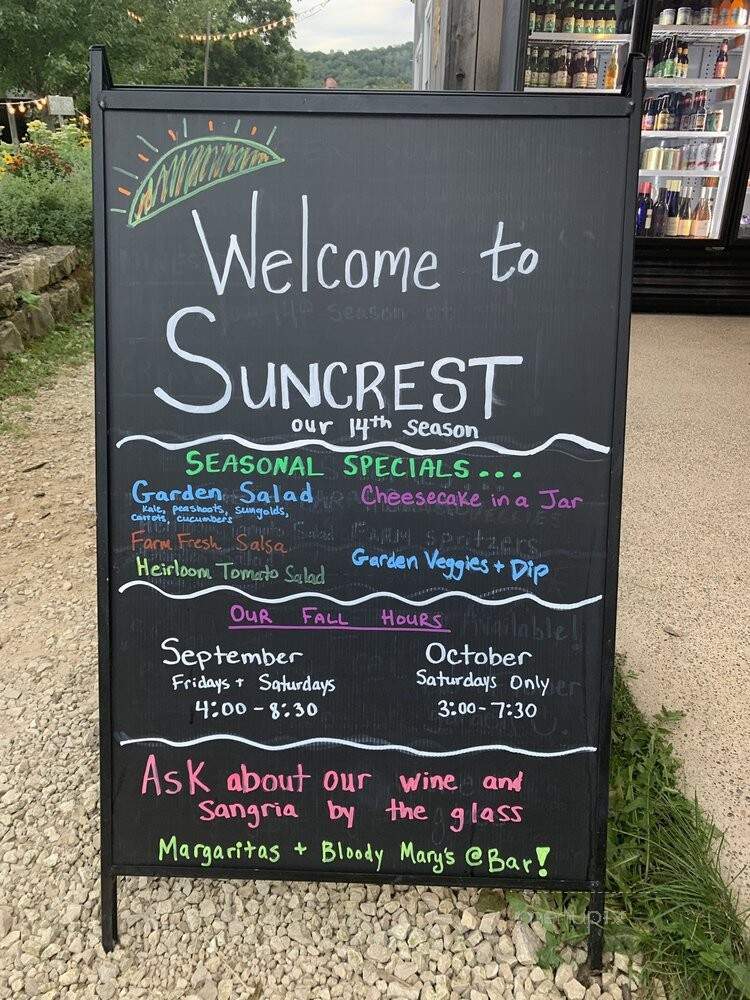 Welcome to
SUNCREST
our 14th season
SEASONAL SPECIALS...
Garden Salad
Kale, peashoots, sungolds,
carrots, cucumbers
Cheesecake in a Jar
Farm Fresh Salsa
Garden Veggies + Dip
Heirloom Tomato Salad
OUR FALL HOURS
September
Fridays + Saturdays
4:00 - 8:30
October
Saturdays Only
3:00 - 7:30
Ask about our wine and
Sangria by the glass
Margaritas + Bloody Mary's @ Bar!